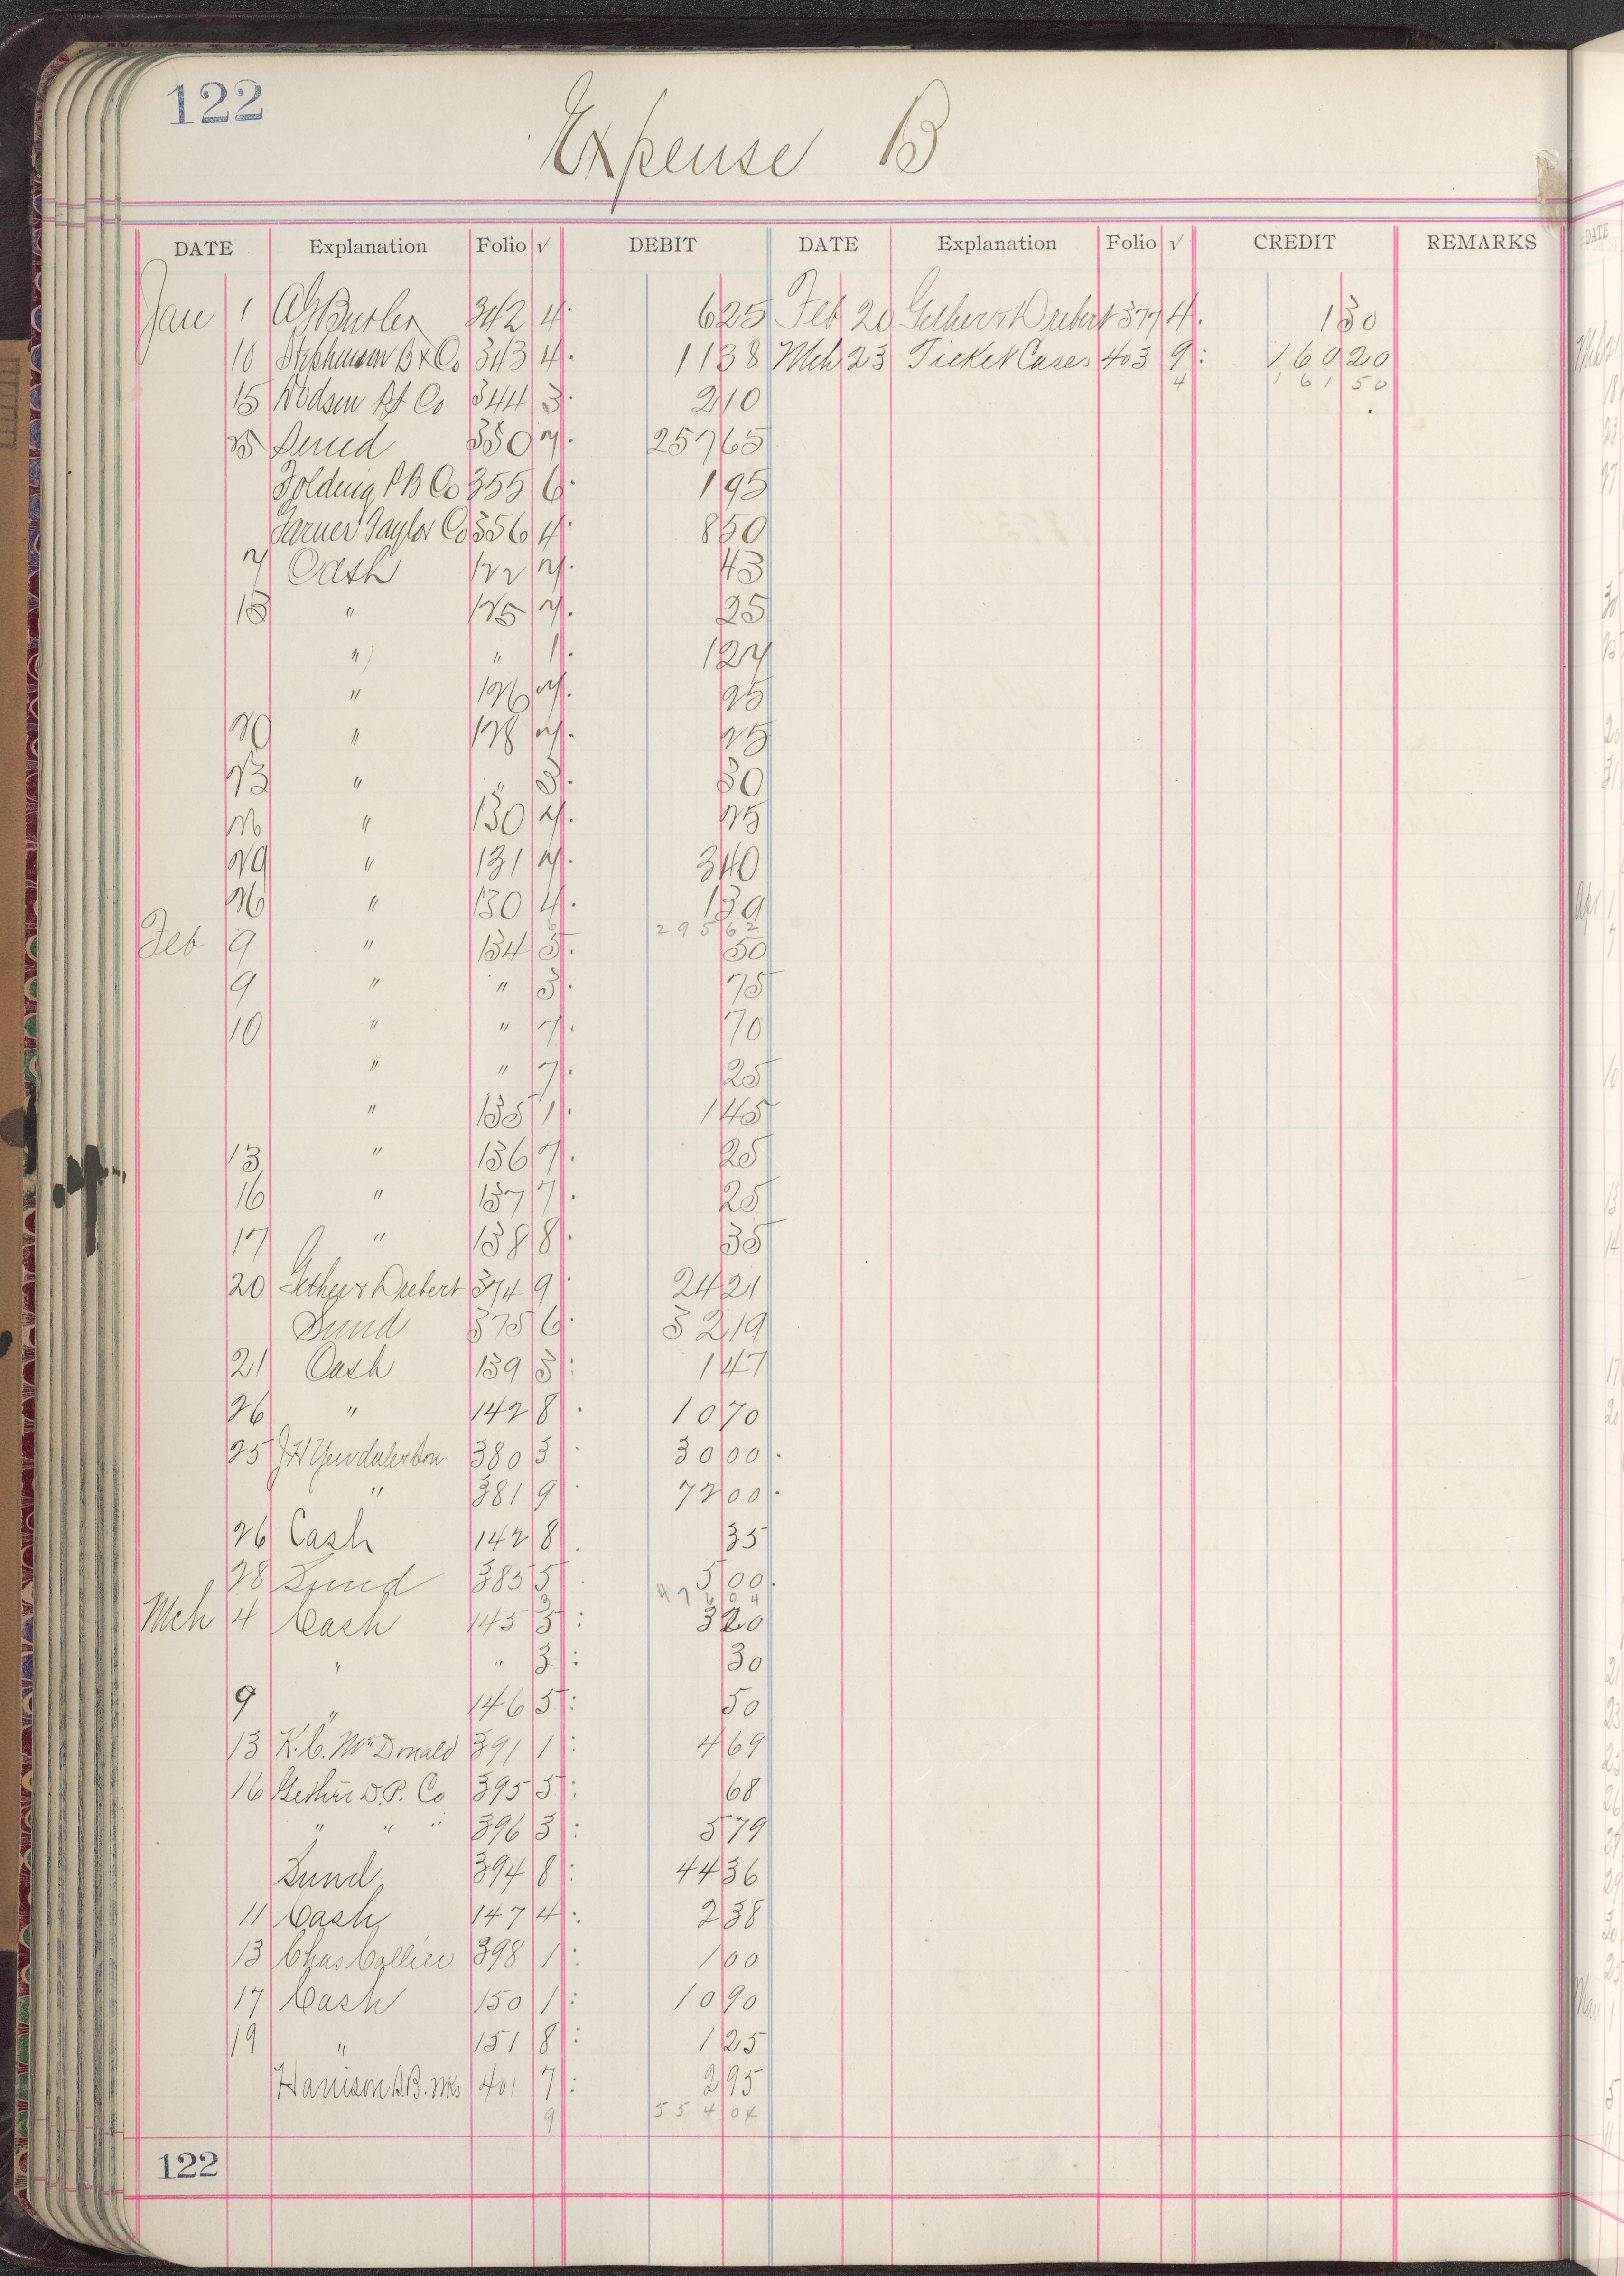 122
Expense B
DATE Explanation Folio √ DEBIT DATE Explanation Folio √ CREDIT REMARKS
Jan 1 Butler 342 4 6 25 Feb 20 374 4 1 30
10 Stephenson B & Co 343 4 11 38 Mch 23 Ticket Cases 403 9 160 20
4 161 50
15 Co 344 3 2 10
25 Sund 350 2 257 65
Golding P B Co 355 6 1 95
Garner Taylor Co 356 4 8 50
2 Cash 122 2 43
18 " 125 2 25
" " 1 1 27
" 126 2 25
20 " 128 2 25
23 " " 3 30
26 " 130 2 25
29 " 131 2 3 40
26 " 130 4 1 39
295 62
Feb 9 " 134 5 50
9 " " 3 75
10 " " 7 70
" " 7 25
" 135 1 1 45
13 " 136 7 25
16 " 137 7 25
17 " 138 8 35
20 374 9 24 21
Sund 375 6 32 19
21 Cash 139 3 1 47
26 " 142 8 10 70
25 J H 380 3 30 00
" 381 9 72 00
26 Cash 142 8 35
28 Sund 385 5 5 00
Mch 4 Cash 145 3 3 20
" " 3 30
9 " 146 5 50
13 K. C. McDonald 391 1 4 69
16 D. P. Co 395 5 68
" " " 396 3 5 79
Sund 394 8 44 36
11 Cash 147 4 2 38
13 Chas Collier 398 1 1 00
17 Cash 150 1 10 90
19 " 151 8 1 25
Harrison B.B. Wks 401 7 2 95
9 554 04
122